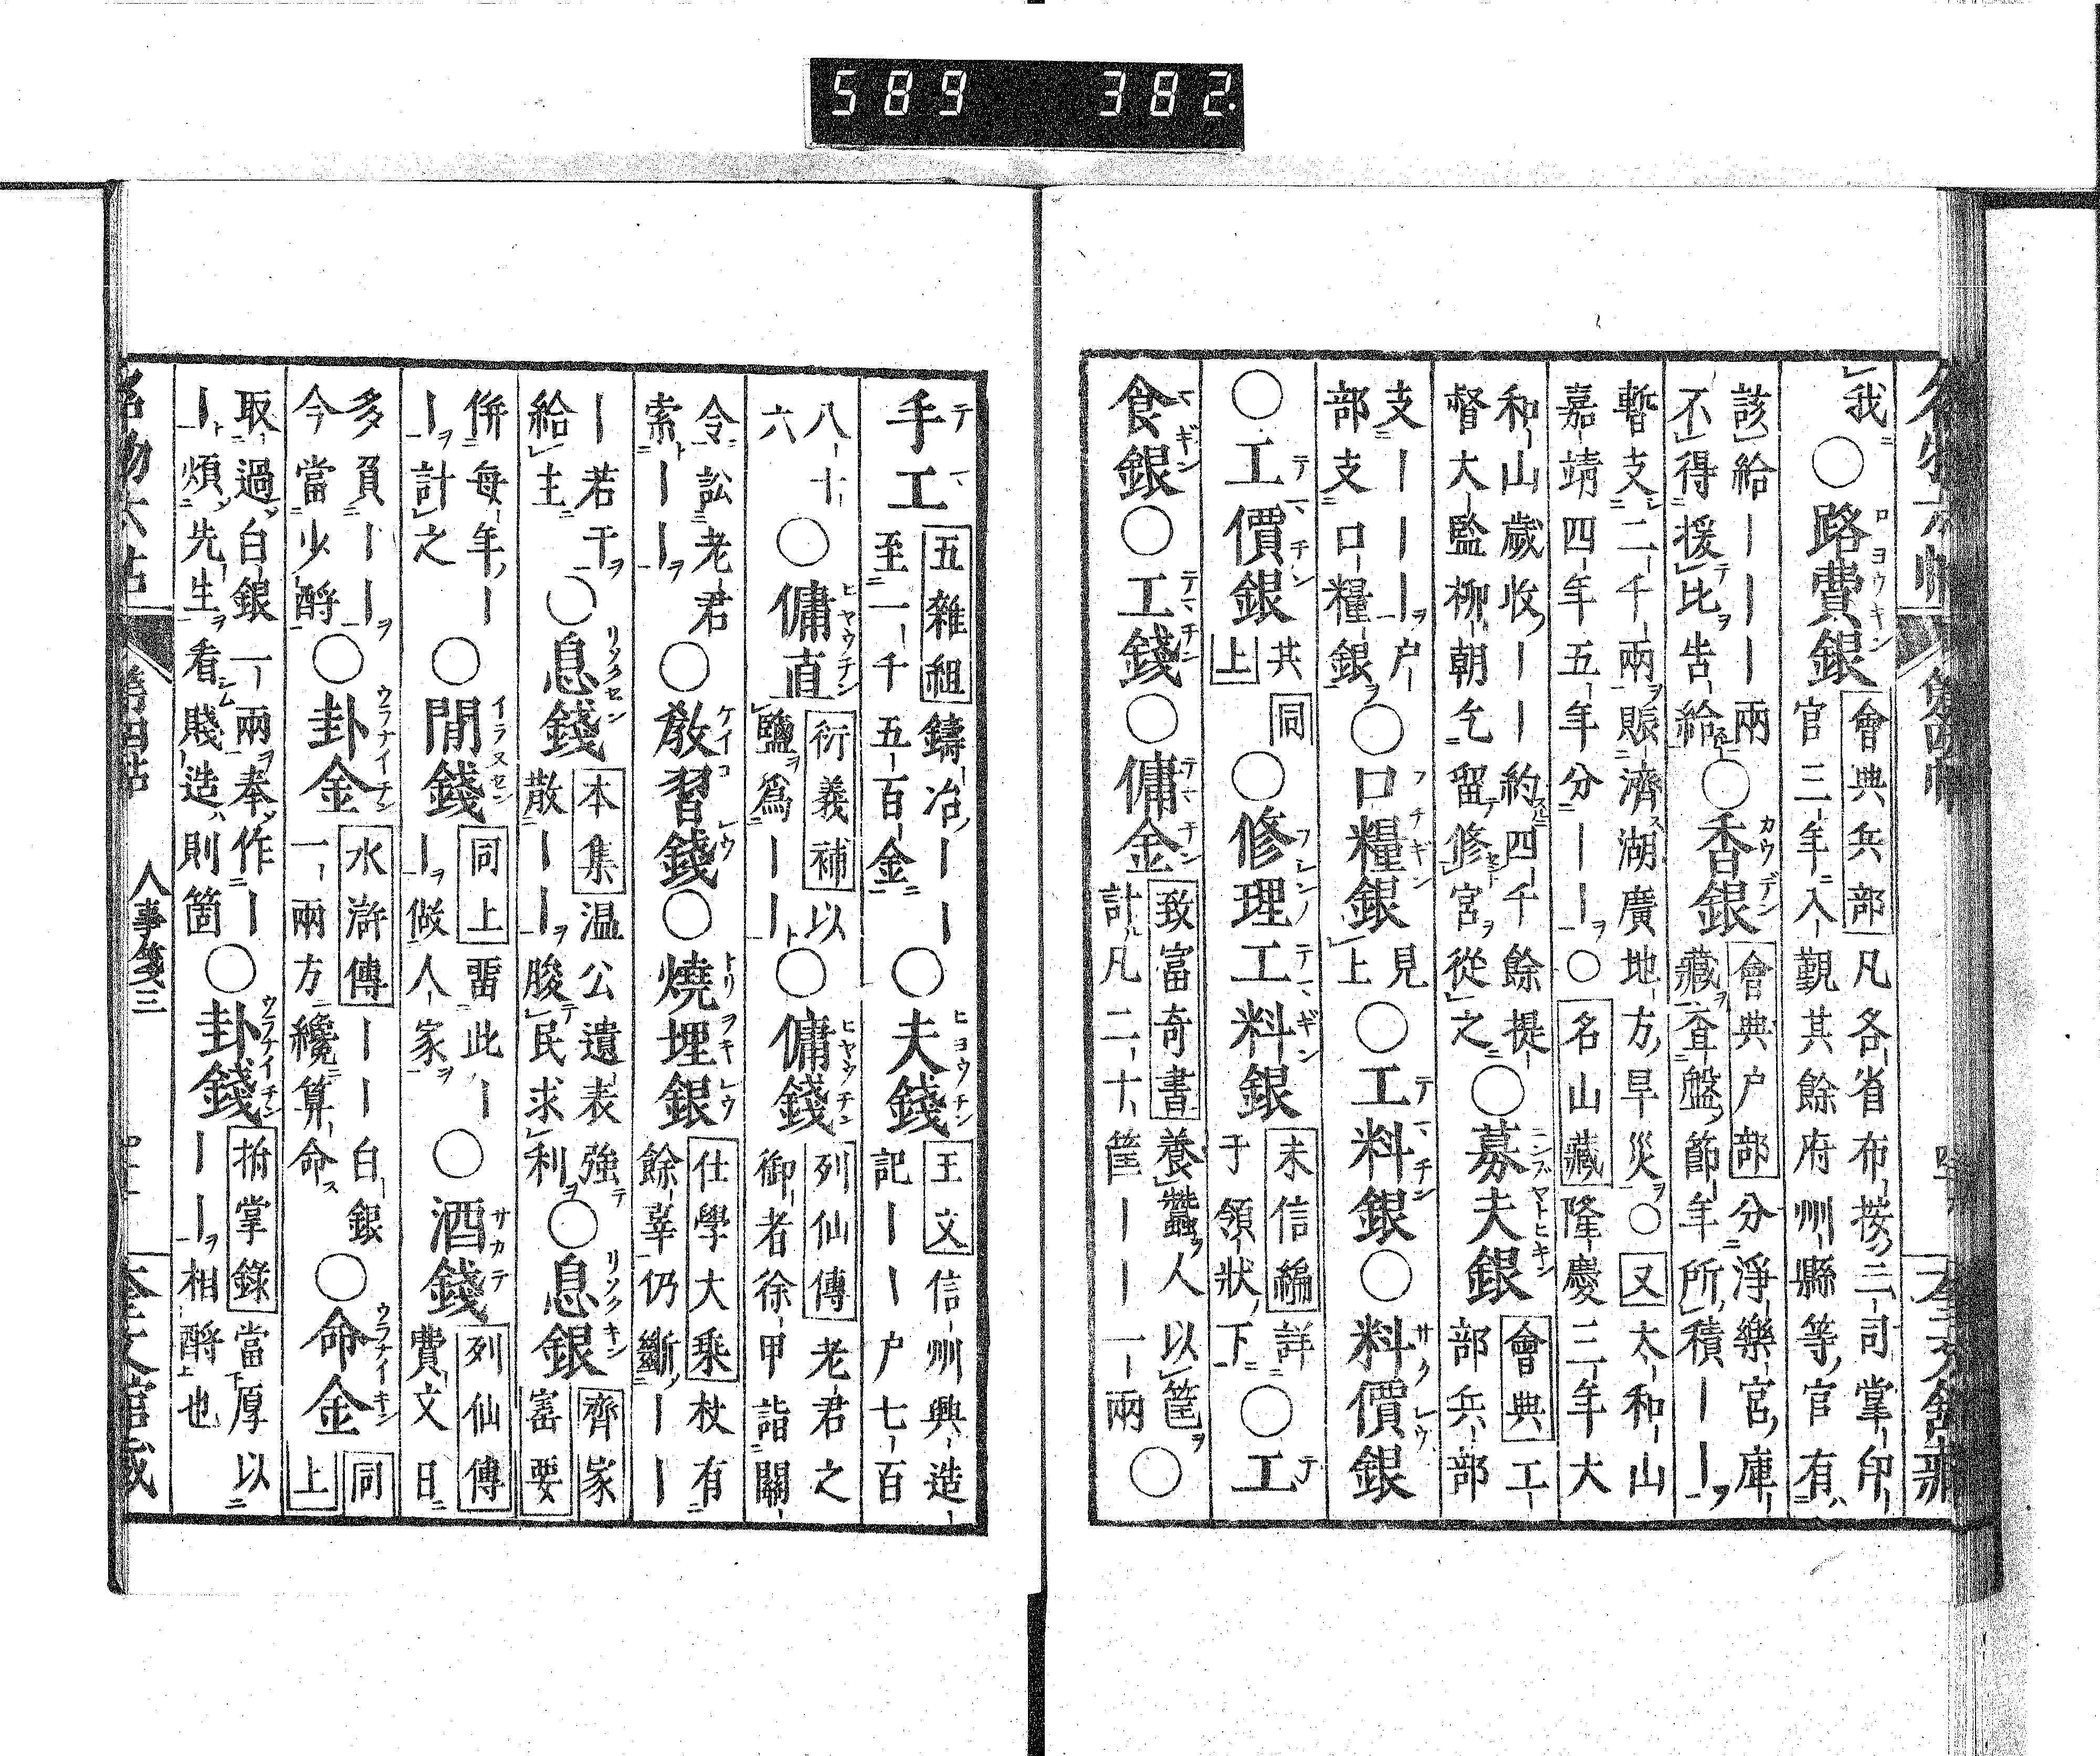 589 382
名物六帖 第四帖 奎文館藏
我○路費銀 會典兵部凡各省布按二司掌印
官三年入覲其餘府州縣等官有
該給｜｜｜兩
不得援比告給○香銀 會典户部分淨樂宮庫
藏查盤節年所積｜｜
暫支二千兩賑濟湖廣地方旱災○又太和山
嘉靖四年五年分｜｜○名山藏隆慶三年大
和山歲收｜｜約四千餘提
督大監柳朝乞留修宮從之○募夫銀 會典工
部兵部
支｜｜｜户
部支口糧銀○口糧銀 見上○工料銀○料價銀
○工價銀 共同上○修理工料銀 未信編詳
于領狀下○工
食銀○工錢○傭金 致富奇書養蠶人以筐
計凡二十筐｜｜一兩○
手工 五雜組鑄冶｜｜
至一千五百金○夫錢 王文信州興造
記｜｜户七百
八十
六○傭直 衍義補以
鹽爲｜｜○傭錢 列仙傳老君之
御者徐甲詣關
令訟老君
索｜｜○教習錢○燒埋銀 仕學大乗杖有
餘辜仍斷｜｜
｜若干
給主○息錢 本集温公遺表強
散｜｜朘民求利○息銀 齊家
寳要
併每年｜
｜計之○閒錢 同上畱此｜
｜做人家○酒錢 列仙傳
費文日
多負｜｜
今當少酹○卦金 水滸傳｜｜白銀
一兩方纔算命○命金 同上
取過白銀一兩奉作｜
｜煩先生看賤造則箇○卦錢 拊掌錄當厚以
｜｜相酹也
名物六帖 第四帖 人事箋三 奎文館藏